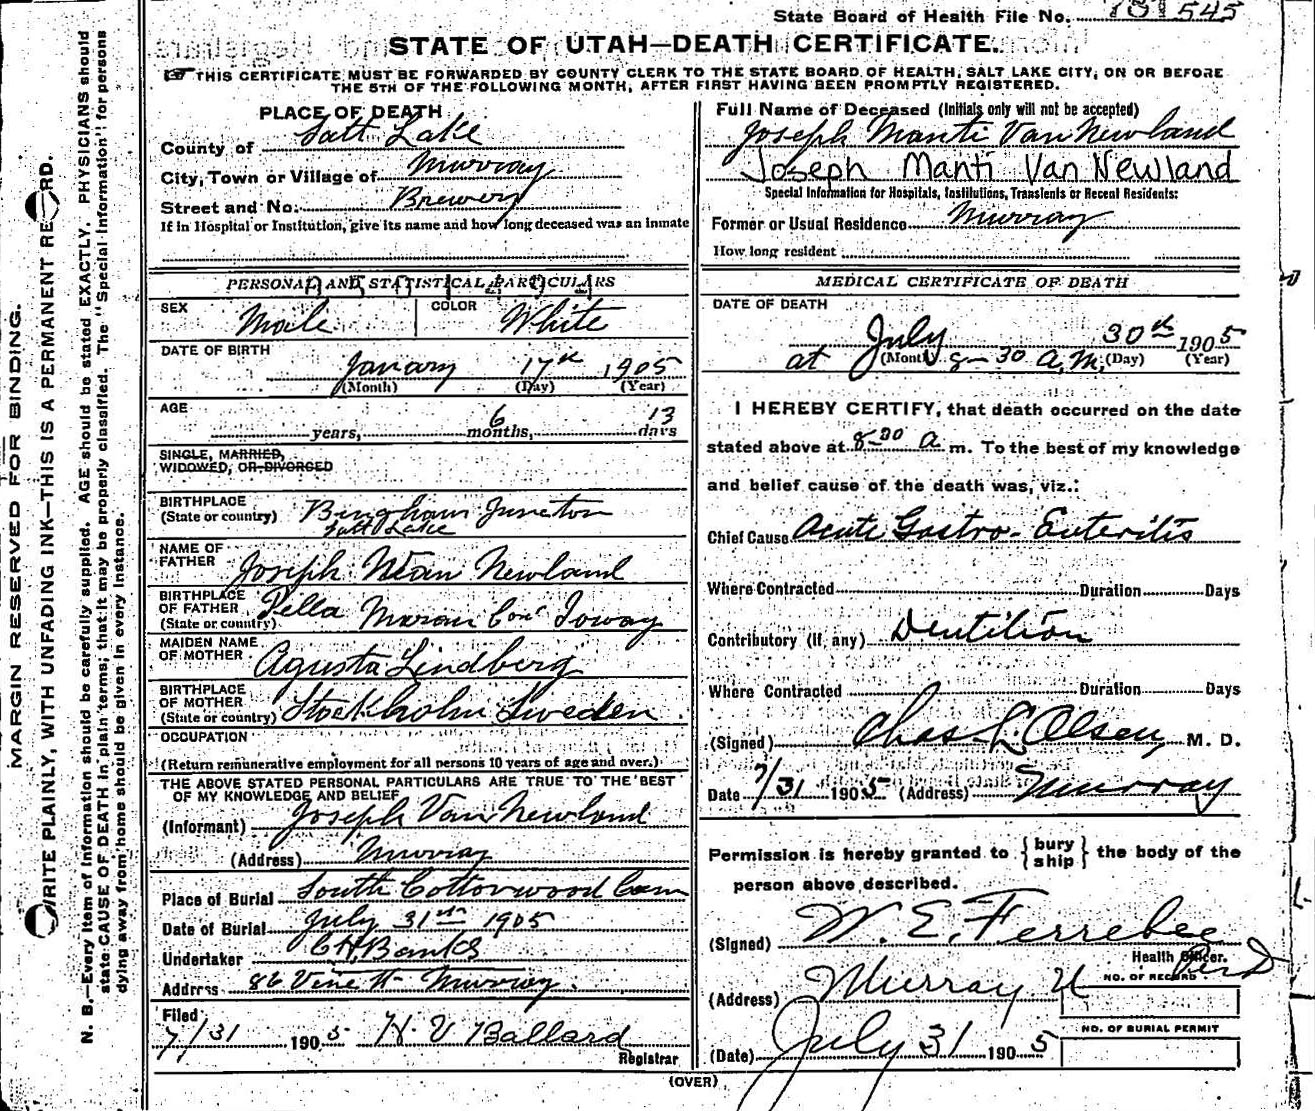 State Board of Health File No. 545
STATE OF UTAH—DEATH CERTIFICATE.
THIS CERTIFICATE MUST BE FORWARDED BY COUNTY CLERK TO THE STATE BOARD OF HEALTH, SALT LAKE CITY, ON OR BEFORE
THE 5TH OF THE FOLLOWING MONTH, AFTER FIRST HAVING BEEN PROMPTLY REGISTERED.
MARGIN RESERVED FOR BINDING.
WRITE PLAINLY, WITH UNFADING INK—THIS IS A PERMANENT RECORD.
N. B.—Every item of information should be carefully supplied. AGE should be stated EXACTLY. PHYSICIANS should
state CAUSE OF DEATH in plain terms; that it may be properly classified. The "Special Information" for persons
dying away from home should be given in every instance.
PLACE OF DEATH
County of Salt Lake
City, Town or Village of Murray
Street and No. Brewery
If in Hospital or Institution, give its name and how long deceased was an inmate
PERSONAL AND STATISTICAL PARTICULARS
SEX Male COLOR White
DATE OF BIRTH
January 17th 1905
(Month) (Day) (Year)
AGE
years, 6 months, 13 days
SINGLE, MARRIED,
WIDOWED, OR DIVORCED
BIRTHPLACE
(State or country) Bingham Junction
Salt Lake
NAME OF
FATHER Joseph Newland
BIRTHPLACE
OF FATHER
(State or country) Pella Marion Co Ioway
MAIDEN NAME
OF MOTHER Agusta Lindberg
BIRTHPLACE
OF MOTHER
(State or country) Stockholm Sweden
OCCUPATION
(Return remunerative employment for all persons 10 years of age and over.)
THE ABOVE STATED PERSONAL PARTICULARS ARE TRUE TO THE BEST
OF MY KNOWLEDGE AND BELIEF
(Informant) Joseph Van Newland
(Address) Murray
Place of Burial South Cottonwood Cem
Date of Burial July 31st 1905
Undertaker C H Banks
Address 86 Vine St Murray.
Filed
7/31 1905 H. V Ballard
Registrar
Full Name of Deceased (Initials only will not be accepted)
Joseph Manti Van Newland
Joseph Manti Van Newland
Special Information for Hospitals, Institutions, Transients or Recent Residents:
Former or Usual Residence Murray
How long resident
MEDICAL CERTIFICATE OF DEATH
DATE OF DEATH
July 30th 1905
at (Month) 8-30 A.M. (Day) (Year)
I HEREBY CERTIFY, that death occurred on the date
stated above at 8-30 a m. To the best of my knowledge
and belief cause of the death was, viz.:
Chief Cause Acute Gastro-Enteritis
Where Contracted Duration Days
Contributory (If any) Dentition
Where Contracted Duration Days
(Signed) Chas L. Olsen, M. D.
Date 7/31 1905 (Address) Murray
Permission is hereby granted to {bury ship} the body of the
person above described.
(Signed) W. E. Ferrebee
Health Officer.
(Address) Murray U
NO. OF RECORD
NO. OF BURIAL PERMIT
(Date) July 31 1905
(OVER)